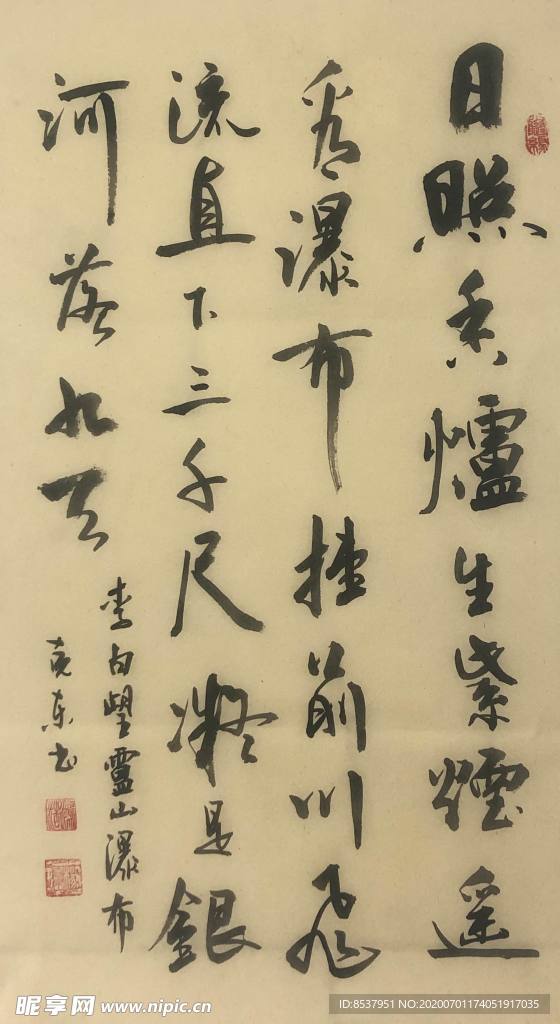 日照香爐生紫煙遥
看瀑布挂前川飛
流直下三千尺凝是銀
河落九天
李白望盧山瀑布
克東书
昵享网 www.nipic.cn
ID:8537951 NO:20200701174051917035